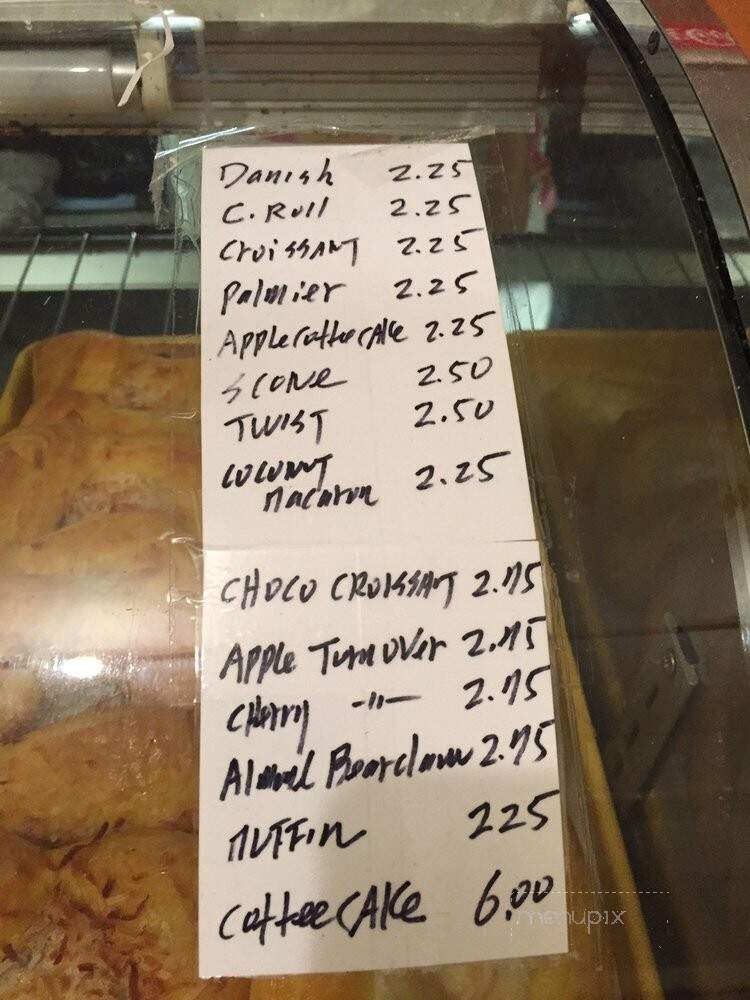 Danish 2.25
C. Roll 2.25
Croissant 2.25
Palmier 2.25
Apple Coffee Cake 2.25
Scone 2.50
Twist 2.50
Coconut
Macaron 2.25
Choco Croissant 2.75
Apple Turnover 2.75
Cherry -"- 2.75
Almond Bearclaw 2.75
Muffin 225
Coffee Cake 6.00
menupix